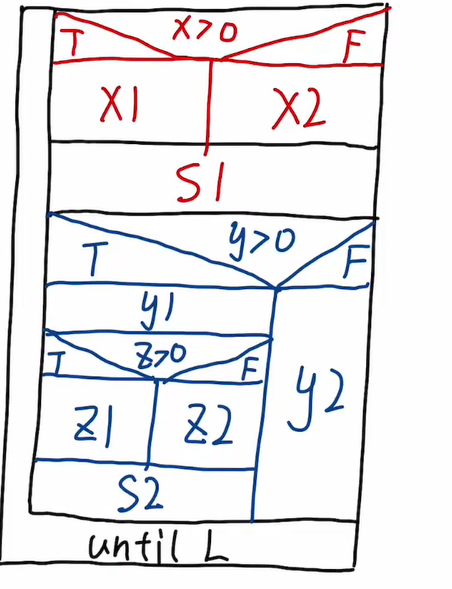 x>0
T F
X1 X2
S1
y>0
T F
y1
z>0
T F
y2
Z1 Z2
S2
until L